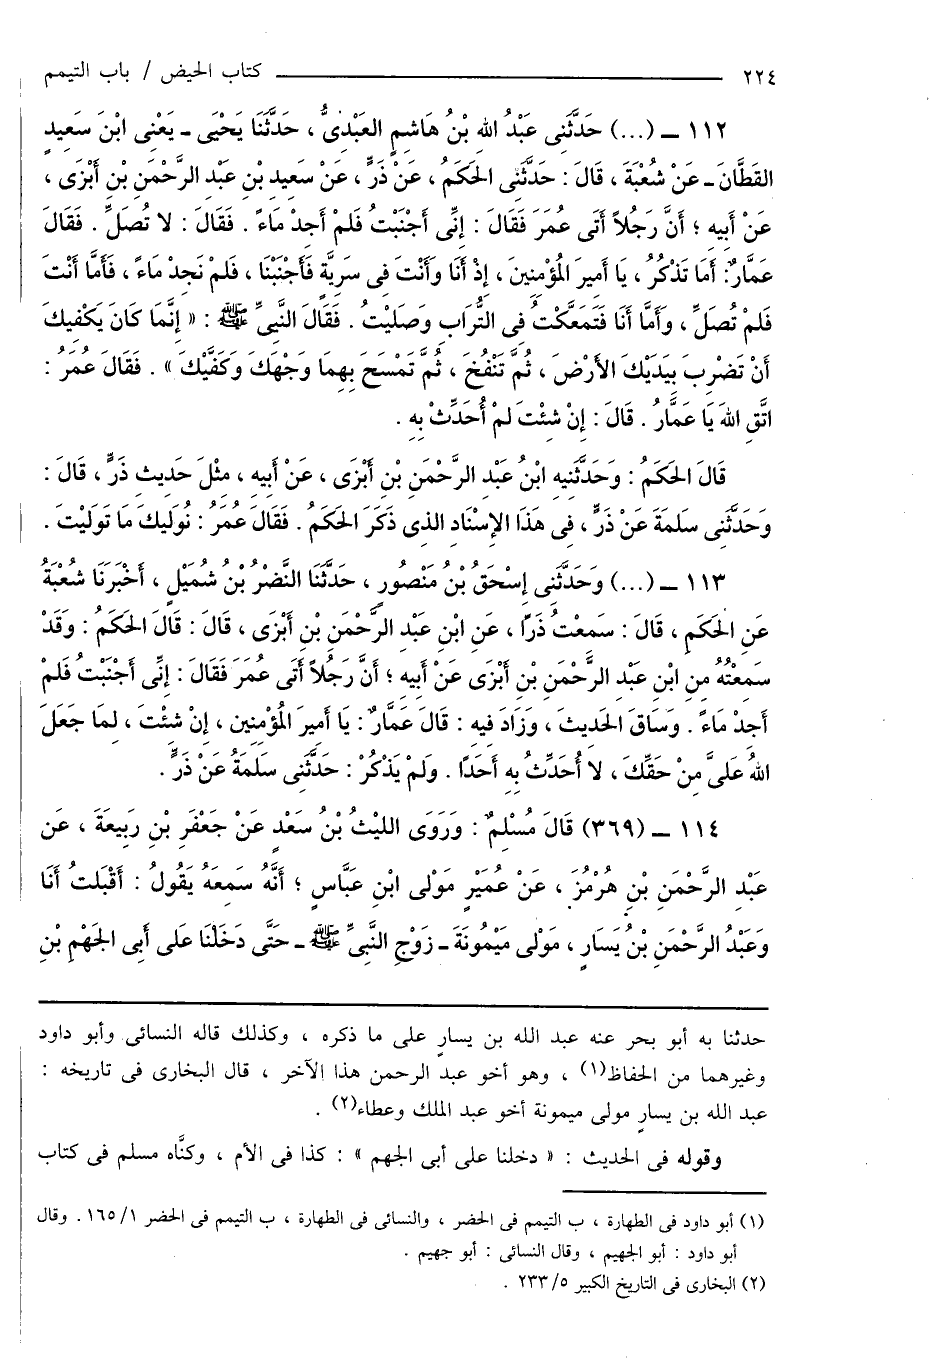 ٢٢٤ ــــــ كتاب الحيض / باب التيمم
١١٢ ــ (...) حَدَّثَنِى عَبْدُ اللهِ بْنُ هَاشِمٍ العَبْدِىُّ ، حَدَّثَنَا يَحْيَى ـ يَعْنِى ابْنَ سَعِيدٍ
القَطَّانَ ـ عَنْ شُعْبَةَ ، قَالَ : حَدَّثَنِى الحَكَمُ ، عَنْ ذَرٍّ ، عَنْ سَعِيدِ بْنِ عَبْدِ الرَّحْمَنِ بْنِ أَبْزَى ،
عَنْ أَبِيهِ ؛ أَنَّ رَجُلاً أَتَى عُمَرَ فَقَالَ : إِنِّى أَجْنَبْتُ فَلَمْ أَجِدْ مَاءً . فَقَالَ : لا تُصَلِّ . فَقَالَ
عَمَّارٌ: أَمَا تَذْكُرُ ، يَا أَمِيرَ المُؤْمِنِينَ ، إِذْ أَنَا وَأَنْتَ فِى سَرِيَّةٍ فَأَجْنَبْنَا ، فَلَمْ نَجِدْ مَاءً ، فَأَمَّا أَنْتَ
فَلَمْ تُصَلِّ ، وَأَمَّا أَنَا فَتَمَعَّكْتُ فِى التُّرَابِ وَصَلَيْتُ . فَقَالَ النَّبِىُّ ﷺ : « إِنَّمَا كَانَ يَكْفِيكَ
أَنْ تَضْرِبَ بِيَدَيْكَ الأَرْضَ ، ثُمَّ تَنْفُخَ ، ثُمَّ تَمْسَحَ بِهِمَا وَجْهَكَ وَكَفَّيْكَ » . فَقَالَ عُمَرُ :
اتَّقِ اللهَ يَا عَمَّارُ . قَالَ : إِنْ شِئْتَ لَمْ أُحَدِّثْ بِهِ .
قَالَ الحَكَمُ : وَحَدَّثَنِيهِ ابْنُ عَبْدِ الرَّحْمَنِ بْنِ أَبْزَى ، عَنْ أَبِيهِ ، مِثْلَ حَدِيثِ ذَرٍّ ، قَالَ :
وَحَدَّثَنِى سَلَمَةُ عَنْ ذَرٍّ ، فِى هَذَا الإِسْنَادِ الذِى ذَكَرَ الحَكَمُ . فَقَالَ عُمَرُ : نُوَلِّيكَ مَا تَوَلَّيْتَ .
١١٣ ــ (...) وَحَدَّثَنِى إِسْحَقُ بْنُ مَنْصُورٍ ، حَدَّثَنَا النَّضْرُ بْنُ شُمَيْلٍ ، أَخْبَرَنَا شُعْبَةُ
عَنِ الحَكَمِ ، قَالَ : سَمِعْتُ ذَرًّا ، عَنِ ابْنِ عَبْدِ الرَّحْمَنِ بْنِ أَبْزَى ، قَالَ : قَالَ الحَكَمُ : وَقَدْ
سَمِعْتُهُ مِنِ ابْنِ عَبْدِ الرَّحْمَنِ بْنِ أَبْزَى عَنْ أَبِيهِ ؛ أَنَّ رَجُلاً أَتَى عُمَرَ فَقَالَ : إِنِّى أَجْنَبْتُ فَلَمْ
أَجِدْ مَاءً . وَسَاقَ الحَدِيثَ ، وَزَادَ فِيهِ : قَالَ عَمَّارٌ : يَا أَمِيرَ المُؤْمِنِينَ ، إِنْ شِئْتَ ، لِمَا جَعَلَ
اللهُ عَلَىَّ مِنْ حَقِّكَ ، لا أُحَدِّثُ بِهِ أَحَدًا . وَلَمْ يَذْكُرْ : حَدَّثَنِى سَلَمَةُ عَنْ ذَرٍّ .
١١٤ ــ (٣٦٩) قَالَ مُسْلِمٌ : وَرَوَى الليْثُ بْنُ سَعْدٍ عَنْ جَعْفَرِ بْنِ رَبِيعَةَ ، عَنْ
عَبْدِ الرَّحْمَنِ بْنِ هُرْمُزَ ، عَنْ عُمَيْرٍ مَوْلَى ابْنِ عَبَّاسٍ ؛ أَنَّهُ سَمِعَهُ يَقُولُ : أَقْبَلتُ أَنَا
وَعَبْدُ الرَّحْمَنِ بْنُ يَسَارٍ ، مَوْلَى مَيْمُونَةَ ـ زَوْجِ النَّبِىِّ ﷺ ـ حَتَّى دَخَلْنَا عَلَى أَبِى الجَهْمِ بْنِ
حدثنا به أبو بحر عنه عبد الله بن يسارٍ على ما ذكره ، وكذلك قاله النسائى وأبو داود
وغيرهما من الحفاظ(١) ، وهو أخو عبد الرحمن هذا الآخر ، قال البخارى فى تاريخه :
عبد الله بن يسارٍ مولى ميمونة أخو عبد الملك وعطاء(٢) .
وقوله فى الحديث : « دخلنا على أبى الجهم » : كذا فى الأم ، وكنَّاه مسلم فى كتاب
(١) أبو داود فى الطهارة ، ب التيمم فى الحضر ، والنسائى فى الطهارة ، ب التيمم فى الحضر ١/ ١٦٥ . وقال
أبو داود : أبو الجهيم ، وقال النسائى : أبو جهيم .
(٢) البخارى فى التاريخ الكبير ٥/ ٢٣٣ .